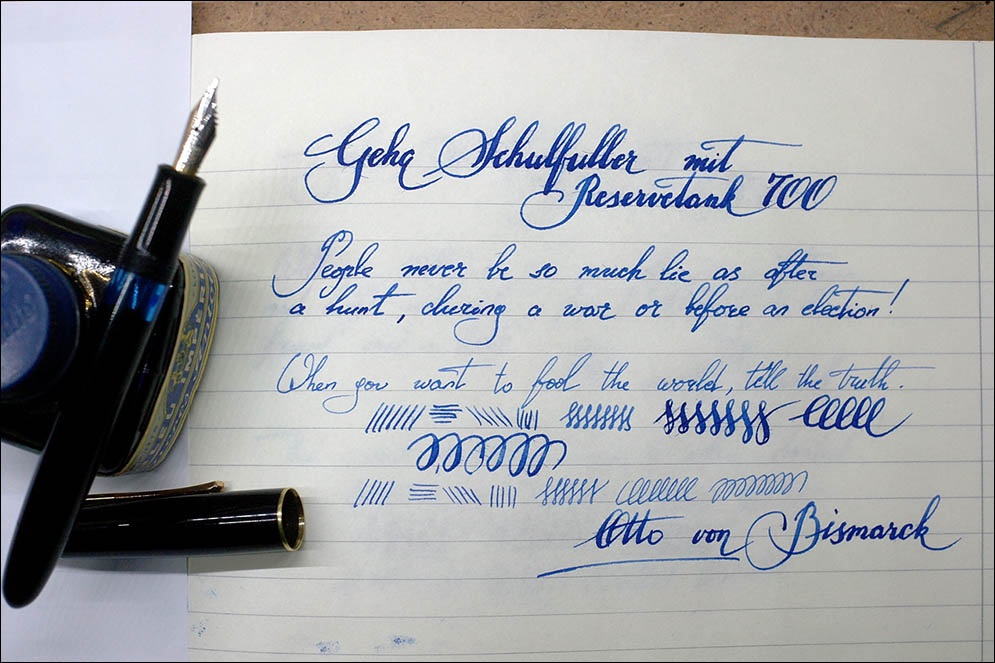 Geha Schulfuller mit
Reservetank 700
People never be so much lie as after
a hunt, during a war or before an election!
When you want to fool the world, tell the truth.
Otto von Bismarck